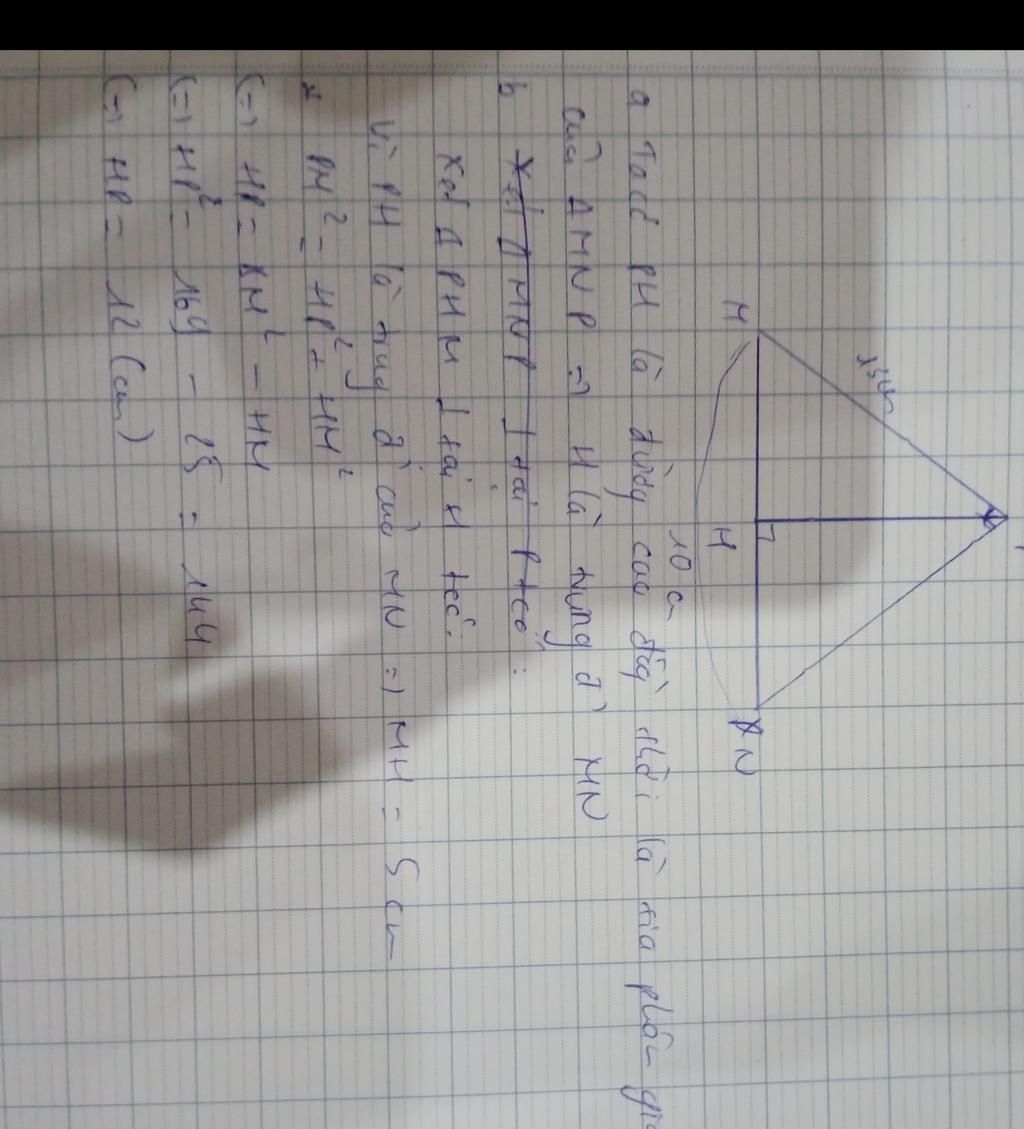 13cm
M
H
N
10 c
a Tacó PH là đường cao đồng thời là tia phân giá
của Δ MNP => H là trung đ' MN
b Xét Δ MNP ⊥ tại P tcó :
Xét Δ PHM ⊥ tại H tcó :
Vì PH là trung đ' của MN => MH = 5 cm
PM² = HP² + HM²
(=) HP = PM² - HM
(=) HP² = 169 - 25 = 144
(=) HP = 12 (cm)